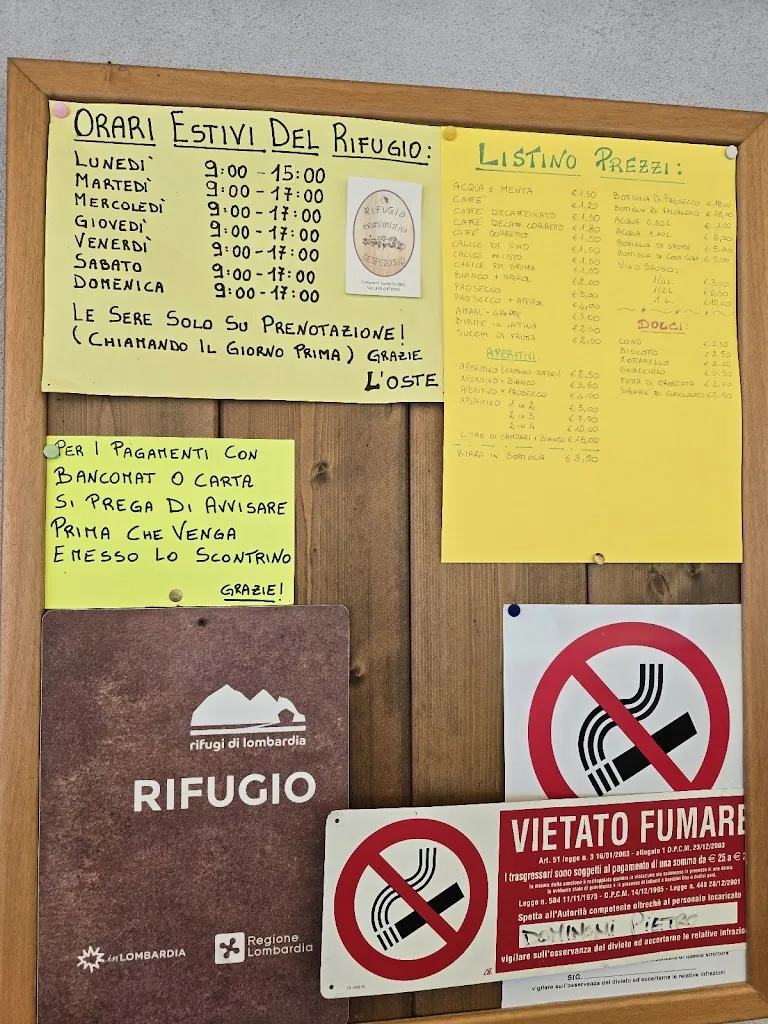 ORARI ESTIVI DEL RIFUGIO:
LUNEDI' 9:00 - 15:00
MARTEDI' 9:00 - 17:00
MERCOLEDI' 9:00 - 17:00
GIOVEDI' 9:00 - 17:00
VENERDI' 9:00 - 17:00
SABATO 9:00 - 17:00
DOMENICA 9:00 - 17:00
LE SERE SOLO SU PRENOTAZIONE!
(CHIAMANDO IL GIORNO PRIMA) GRAZIE
L'OSTE
RIFUGIO
LISTINO PREZZI:
ACQUA E MENTA € 1.50
CAFFE' € 1.20
CAFFE' DECAFFEINATO € 1.50
CAFFE' DECAFF. CORRETTO € 1.80
CAFFE' CORRETTO € 1.50
CALICE DI VINO € 1.50
CALICE MISTO € 1.50
BIANCO + APEROL € 2.00
PROSECCO € 3.00
PROSECCO + APEROL € 4.00
AMARI - GRAPPE € 3.00
BIBITE IN LATTINA € 2.50
SUCCHI DI FRUTTA € 2.50
APERITIVI:
APERITIVO + BIANCO € 3.50
APERITIVO + PROSECCO € 4.00
APERITIVO 1 IN 2 € 5.00
2 IN 3 € 7.50
2 IN 4 € 10.00
LITRO DI CAMPARI + BIANCO € 15.00
BIRRA IN BOTTIGLIA € 3,50
BOTTIGLIA DI PROSECCO € 18,00
ACQUA 0,50L € 1,00
ACQUA 1,50L € 2,00
VINO SFUSO:
1/4 L. € 3,00
1/2 L. € 5,50
1 L. € 10,00
DOLCI:
CONO € 2.50
BISCOTTO € 2.50
MOTTARELLO € 2.00
GHIACCIOLO
FETTA DI CROSTATA € 3.00
PER I PAGAMENTI CON
BANCOMAT O CARTA
SI PREGA DI AVVISARE
PRIMA CHE VENGA
EMESSO LO SCONTRINO
GRAZIE!
rifugi di lombardia
RIFUGIO
inLOMBARDIA
Regione
Lombardia
VIETATO FUMARE
Art. 51 legge n. 3 16/01/2003 - allegato 1 D.P.C.M. 23/12/2003
I trasgressori sono soggetti al pagamento di una somma da € 25 a €
la misura della sanzione è raddoppiata qualora la violazione sia commessa in presenza di una donna
in evidente stato di gravidanza o in presenza di lattanti o bambini fino a dodici anni.
Legge n. 584 11/11/1975 - D.P.C.M. 14/12/1995 - Legge n. 448 28/12/2001
Spetta all'Autorità competente oltreché al personale incaricato
DOMINONI PIETRO
vigilare sull'osservanza del divieto ed accertarne le relative infrazio
SIG.
vigilare sull'osservanza del divieto ed accertarne le relative infrazioni